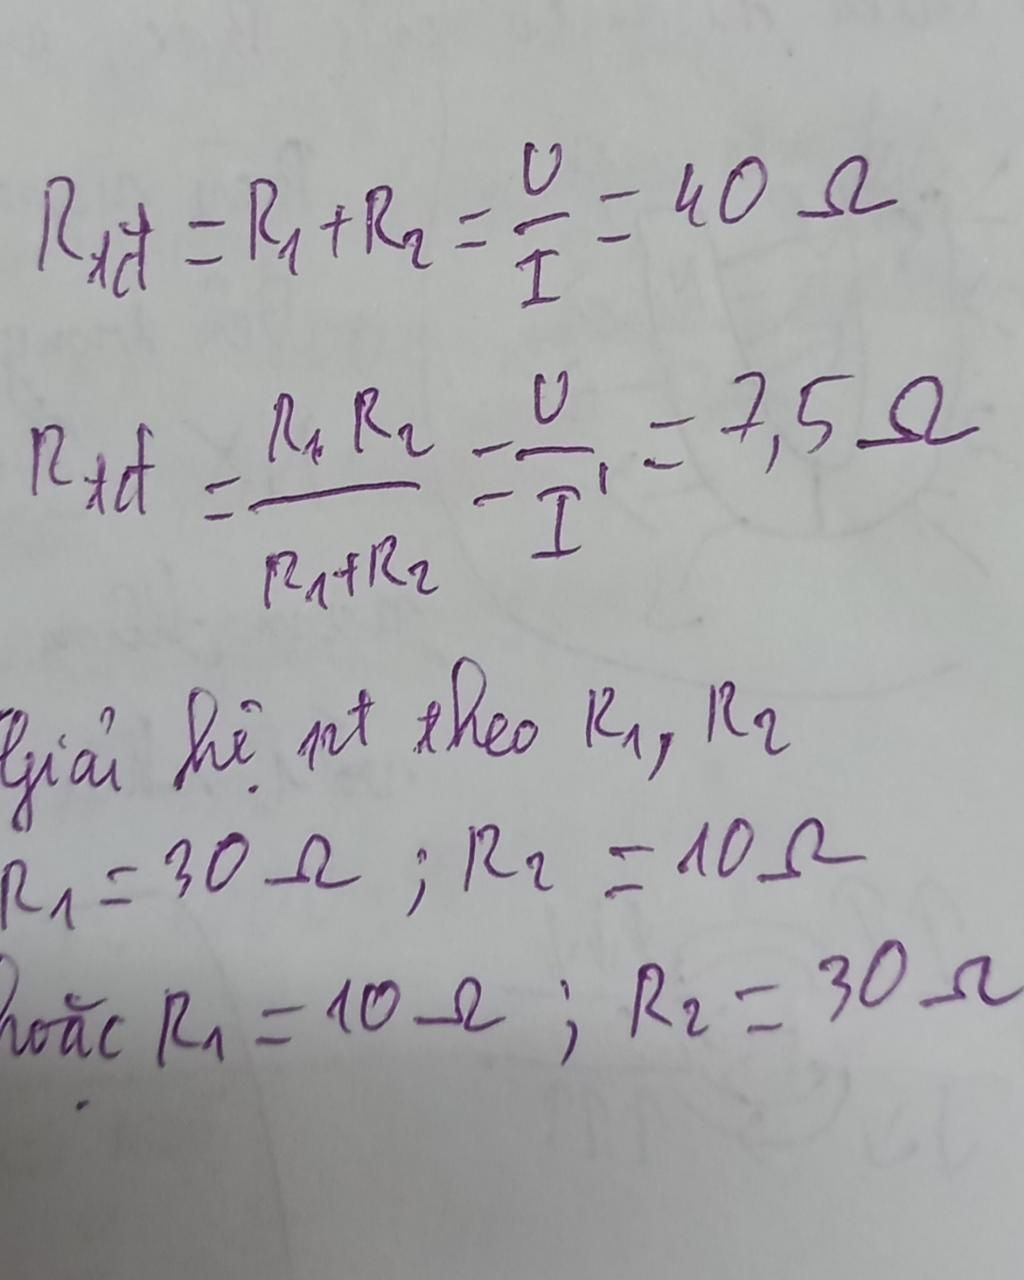 Rtđ = R1 + R2 = U/I = 40 Ω
Rtđ = R1 R2 / R1+R2 = U/I' = 7,5 Ω
Giải hệ pt theo R1, R2
R1 = 30 Ω ; R2 = 10 Ω
hoặc R1 = 10 Ω ; R2 = 30 Ω